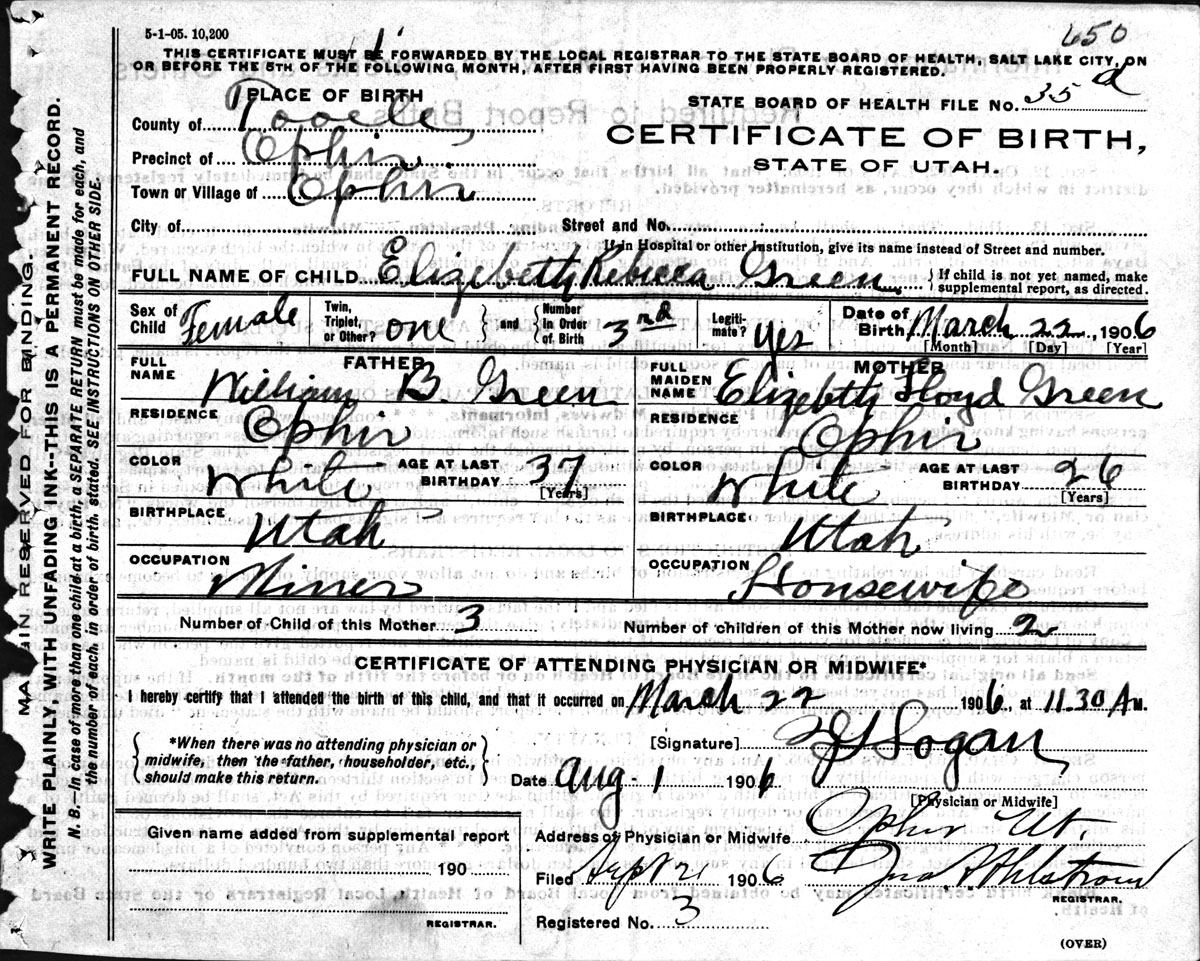 5-1-05. 10,200
650
THIS CERTIFICATE MUST BE FORWARDED BY THE LOCAL REGISTRAR TO THE STATE BOARD OF HEALTH, SALT LAKE CITY, ON
OR BEFORE THE 5TH OF THE FOLLOWING MONTH, AFTER FIRST HAVING BEEN PROPERLY REGISTERED.
PLACE OF BIRTH
STATE BOARD OF HEALTH FILE NO. 35 d
County of Tooele
CERTIFICATE OF BIRTH,
STATE OF UTAH.
Precinct of Ophir
Town or Village of Ophir
City of Street and No.
If in Hospital or other Institution, give its name instead of Street and number.
FULL NAME OF CHILD Elizebeth Rebicca Green { If child is not yet named, make supplemental report, as directed.
Sex of Child Female Twin, Triplet, or Other? one { and } Number in Order of Birth 3nd Legitimate? yes Date of Birth March 22, 1906
[Month] [Day] [Year]
FATHER MOTHER
FULL NAME William B. Green FULL MAIDEN NAME Elizebeth Floyd Green
RESIDENCE Ophir RESIDENCE Ophir
COLOR White AGE AT LAST BIRTHDAY 37 [Years] COLOR White AGE AT LAST BIRTHDAY 26 [Years]
BIRTHPLACE Utah BIRTHPLACE Utah
OCCUPATION Miner OCCUPATION Housewife
Number of Child of this Mother 3 Number of children of this Mother now living 2
CERTIFICATE OF ATTENDING PHYSICIAN OR MIDWIFE*
I hereby certify that I attended the birth of this child, and that it occurred on March 22 1906, at 11.30 A M.
{ *When there was no attending physician or midwife, then the father, householder, etc., should make this return. }
[Signature] Logan
Date Aug-1 1906
[Physician or Midwife]
Given name added from supplemental report
190
REGISTRAR.
Address of Physician or Midwife Ophir Ut.
Filed Sept 21 1906 Jno. Ahlstrom
REGISTRAR.
Registered No. 3
(OVER)
MARGIN RESERVED FOR BINDING.
WRITE PLAINLY, WITH UNFADING INK--THIS IS A PERMANENT RECORD.
N. B.--In case of more than one child at a birth, a SEPARATE RETURN must be made for each, and
the number of each, in order of birth, stated. SEE INSTRUCTIONS ON OTHER SIDE.